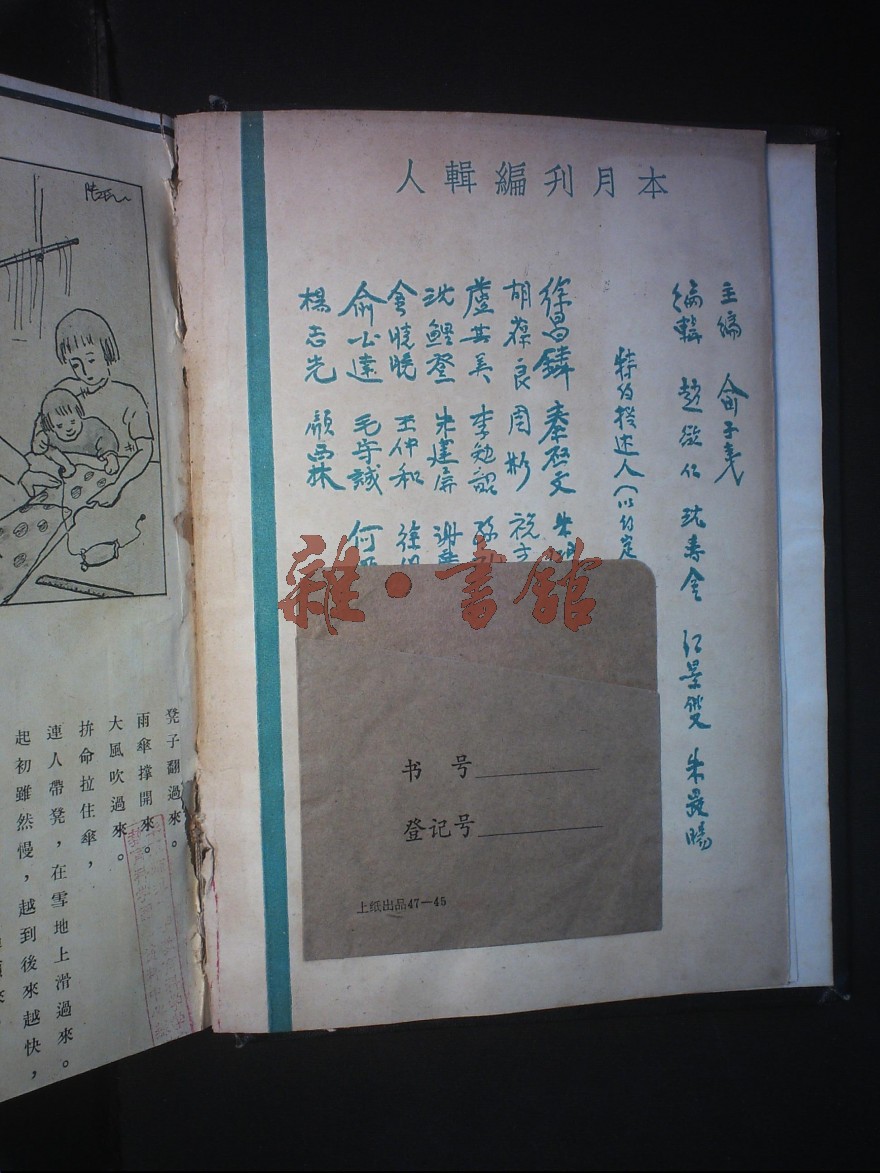 本月刊編輯人
主編 俞子夷
編輯 趙欲仁 沈壽金 江景雙 朱晸暘
特約撰述人(以約定
徐昌鏻 秦啟文 朱
胡葆良 周彬 祝志
盧世美 李勉韶 孫
沈鯉登 朱建屏 謝
金曉晚 王仲和 徐
俞公達 毛守誠 何
楊志光 顏西林
雜·書館
书 号
登记号
上纸出品47—45
凳子翻過來。
雨傘撐開來。
大風吹過來。
拚命拉住傘，
連人帶凳，在雪地上滑過來。
起初雖然慢，越到後來越快，